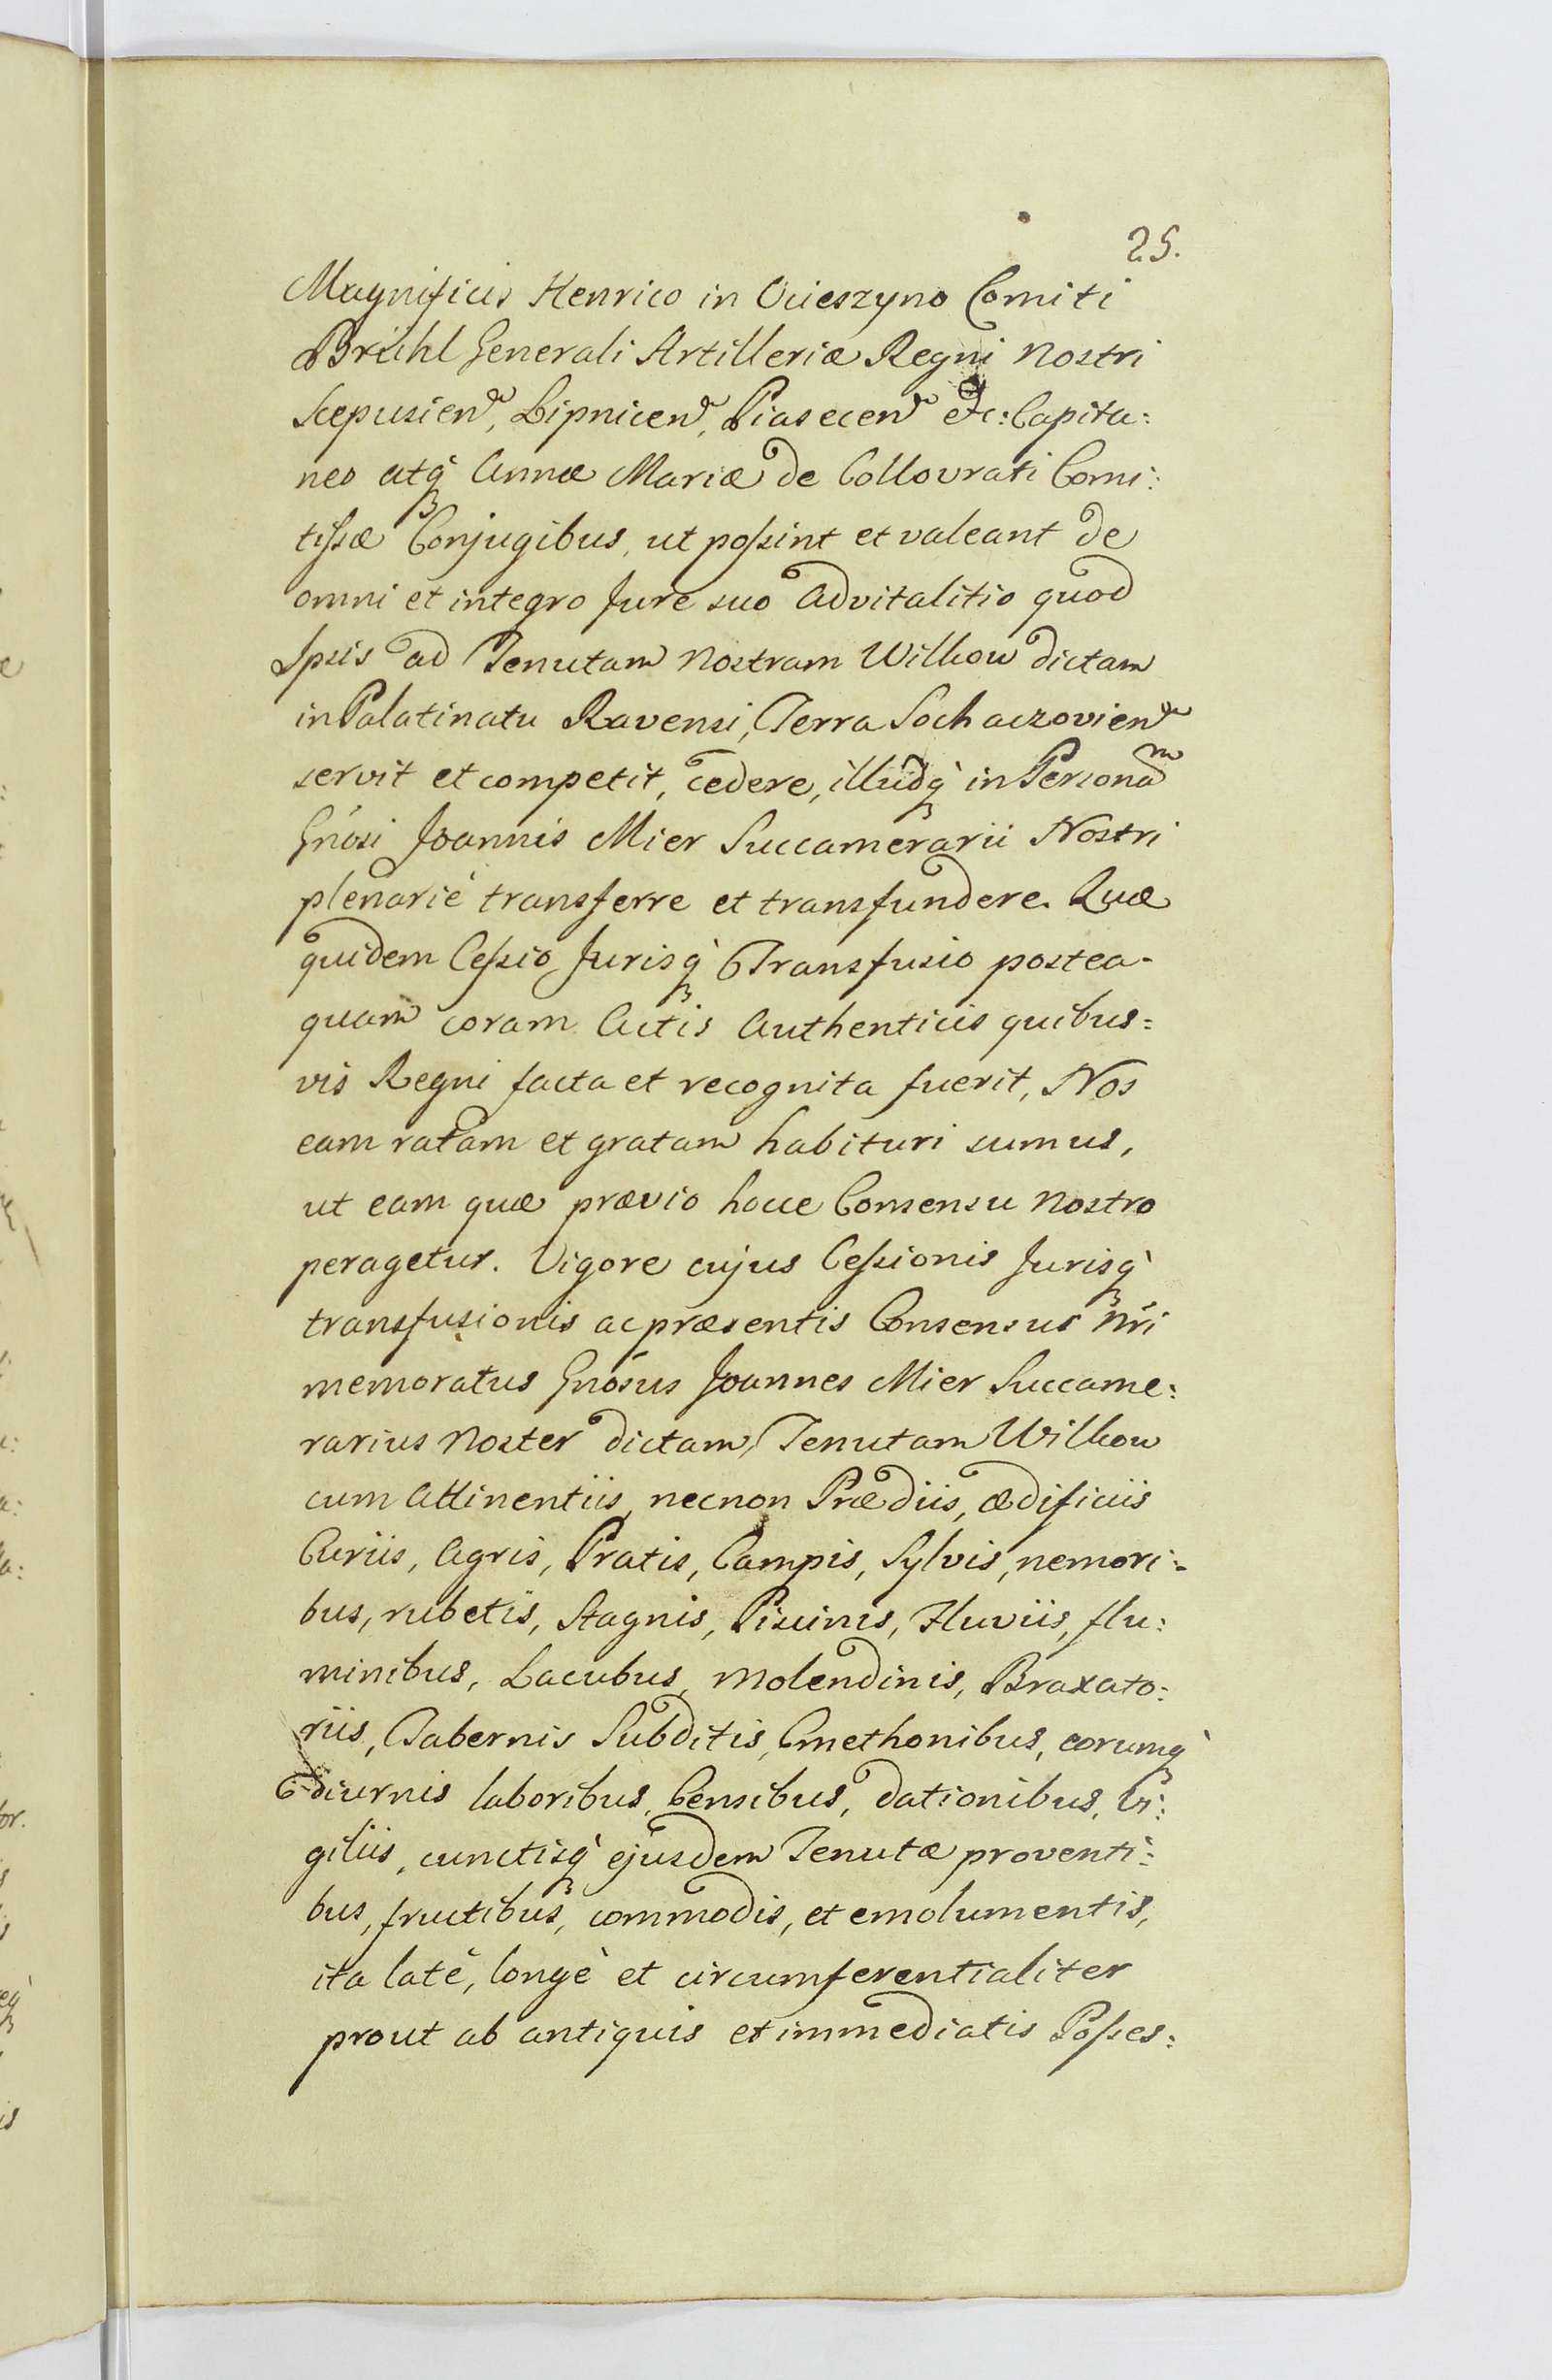 25.
Magnificis Henrico in Ocieszyno Comiti
Brühl Generali Artilleriæ Regni Nostri
Scepusien, Lipnicen, Piasecen etc: Capita:
neo atq Annæ Mariæ de Collovrati Comi:
tiſsæ Conjugibus, ut poſsint et valeant de
omni et integro Jure suo advitalitio quod
Ipsis ad Tenutam Nostram Wilkow dictam
in Palatinatu Ravensi, Terra Sochaczovien
servit et competit, cedere, illudq̀ in Personam
Gnósi Joannis Mier Succamerarii Nostri
plenariè transferre et transfundere. Quæ
quidem Ceſsio Jurisq̀ Transfusio postea-
quam coram Actis Authenticis quibus=
vis Regni facta et recognita fuerit, Nos
eam ratam et gratam habituri sumus,
ut eam quæ prævio hocce Consensu Nostro
peragetur. Vigore cujus Ceſsionis Jurisq̀
transfusionis ac præsentis Consensus Nri
memoratus Gnósus Joannes Mier Succame:
rarius Noster dictam Tenutam Wilkow
cum Attinentiis, necnon Prædiis, ædificiis
Curiis, Agris, Pratis, Campis, Sylvis, nemori=
bus, rubetis, Stagnis, Piscinis, Fluviis, flu:
minibus, Lacubus, Molendinis, Braxato:
riis, Tabernis Subditis, Cmethonibus, eorumq̀
diurnis laboribus, Censibus, dationibus, Vi:
giliis, cunctisq̀ ejusdem Tenutæ proventi=
bus, fructibus, commodis, et emolumentis,
ita latè, longè et circumferentialiter
prout ab antiquis et immediatis Poſses: